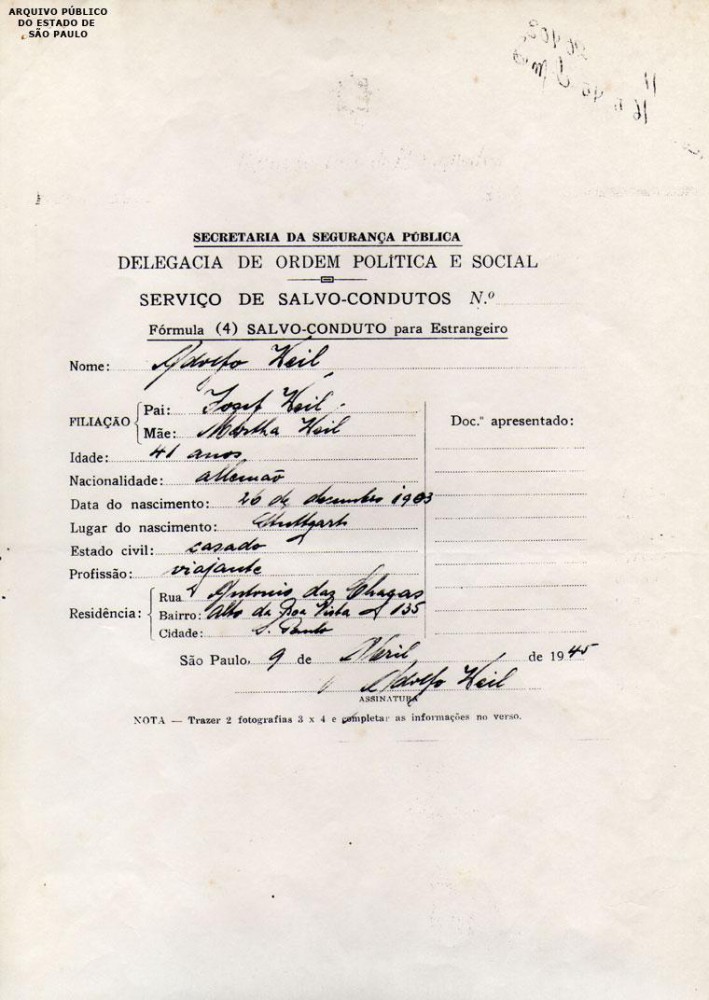 ARQUIVO PÚBLICO
DO ESTADO DE
SÃO PAULO
SECRETARIA DA SEGURANÇA PÚBLICA
DELEGACIA DE ORDEM POLÍTICA E SOCIAL
SERVIÇO DE SALVO-CONDUTOS N.º
Fórmula (4) SALVO-CONDUTO para Estrangeiro
Nome: Adolfo Weil
FILIAÇÃO
Pai: Josef Weil
Mãe: Martha Weil
Doc.º apresentado:
Idade: 41 anos
Nacionalidade: allemão
Data do nascimento: 26 de dezembro 1903
Lugar do nascimento: Stuttgart
Estado civil: casado
Profissão: viajante
Residência:
Rua Antonio das Chagas
Bairro: Alto da Boa Vista 135
Cidade: S. Paulo
São Paulo, 9 de Abril de 1945
Adolfo Weil
ASSINATURA
NOTA — Trazer 2 fotografias 3 x 4 e completar as informações no verso.